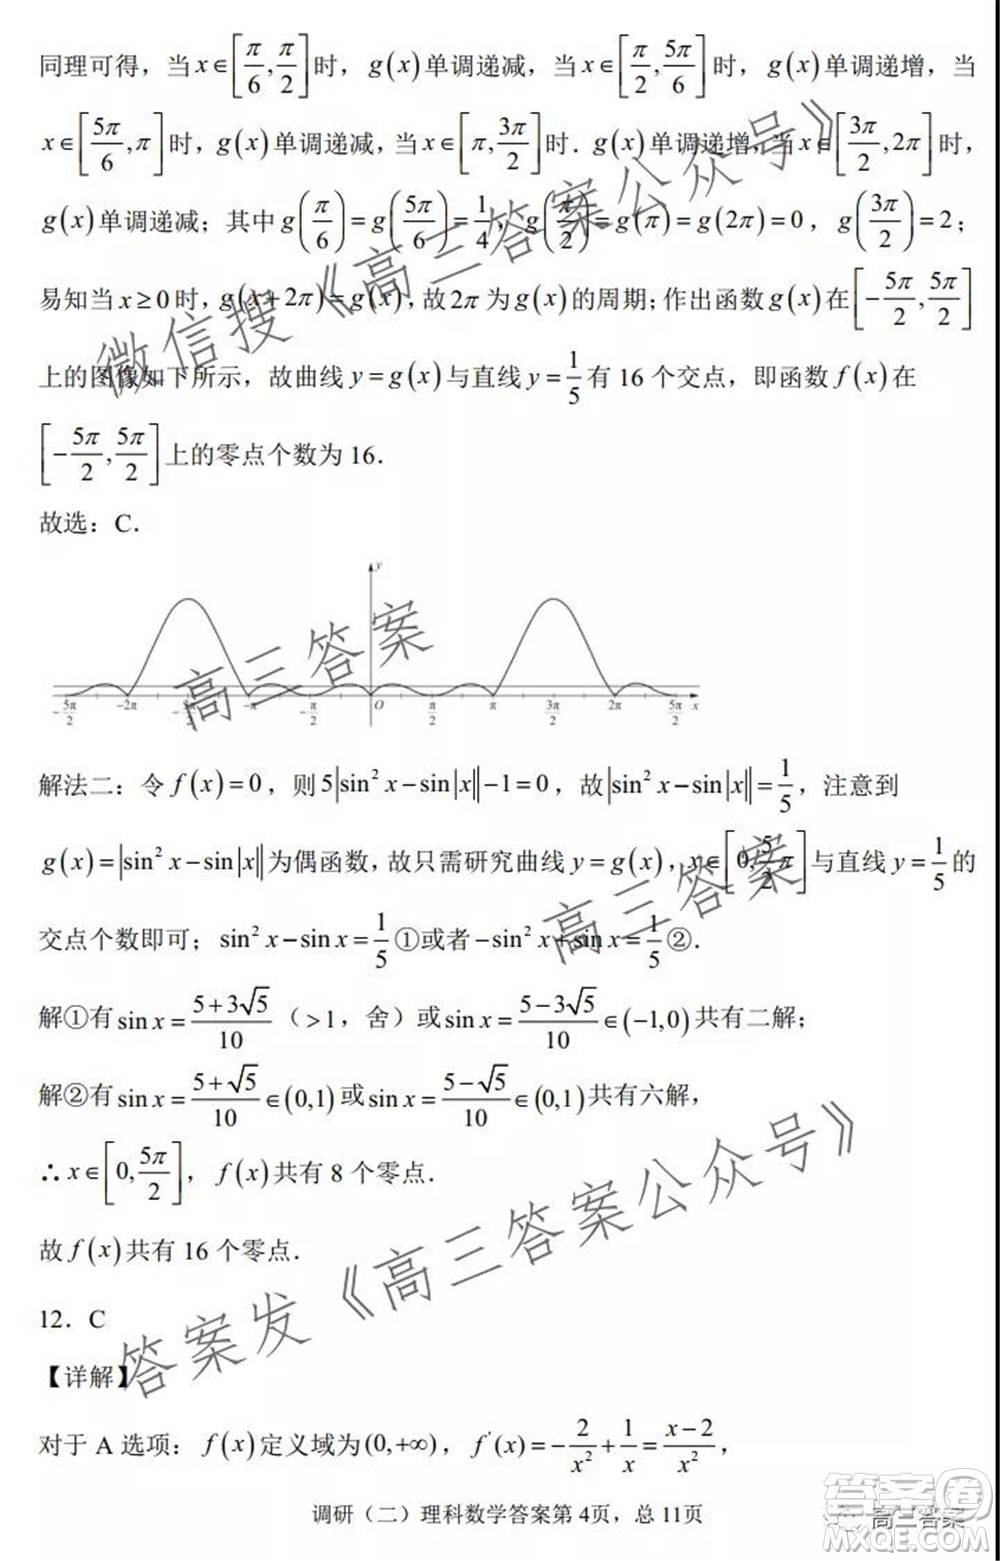 同理可得，当 x∈[π/6, π/2] 时，g(x) 单调递减，当 x∈[π/2, 5π/6] 时，g(x) 单调递增，当
x∈[5π/6, π] 时，g(x) 单调递减，当 x∈[π, 3π/2] 时．g(x) 单调递增，当 x∈[3π/2, 2π] 时，
g(x) 单调递减；其中 g(π/6)=g(5π/6)=1/4，g(π/2)=g(π)=g(2π)=0，g(3π/2)=2；
易知当 x≥0 时，g(x+2π)=g(x)，故 2π 为 g(x) 的周期；作出函数 g(x) 在 [-5π/2, 5π/2]
上的图像如下所示，故曲线 y=g(x) 与直线 y=1/5 有 16 个交点，即函数 f(x) 在
[-5π/2, 5π/2] 上的零点个数为 16．
故选：C．
y
-5π/2 -2π -π -π/2 O π/2 π 3π/2 2π 5π/2 x
解法二：令 f(x)=0，则 5|sin²x-sin|x||-1=0，故 |sin²x-sin|x||=1/5，注意到
g(x)=|sin²x-sin|x|| 为偶函数，故只需研究曲线 y=g(x)，x∈[0, 5/2 π] 与直线 y=1/5 的
交点个数即可；sin²x-sinx=1/5 ①或者 -sin²x+sinx=1/5 ②．
解①有 sinx=(5+3√5)/10（>1，舍）或 sinx=(5-3√5)/10∈(-1,0) 共有二解；
解②有 sinx=(5+√5)/10∈(0,1) 或 sinx=(5-√5)/10∈(0,1) 共有六解，
∴x∈[0, 5π/2]，f(x) 共有 8 个零点．
故 f(x) 共有 16 个零点．
12．C
【详解】
对于 A 选项：f(x) 定义域为 (0,+∞)，f'(x)=-2/x²+1/x=(x-2)/x²，
调研（二）理科数学答案第 4页，总 11页
微信搜《高三答案公众号》
高三答案
高三答案
答案发《高三答案公众号》
高三答案
答案圈
MXQE.COM